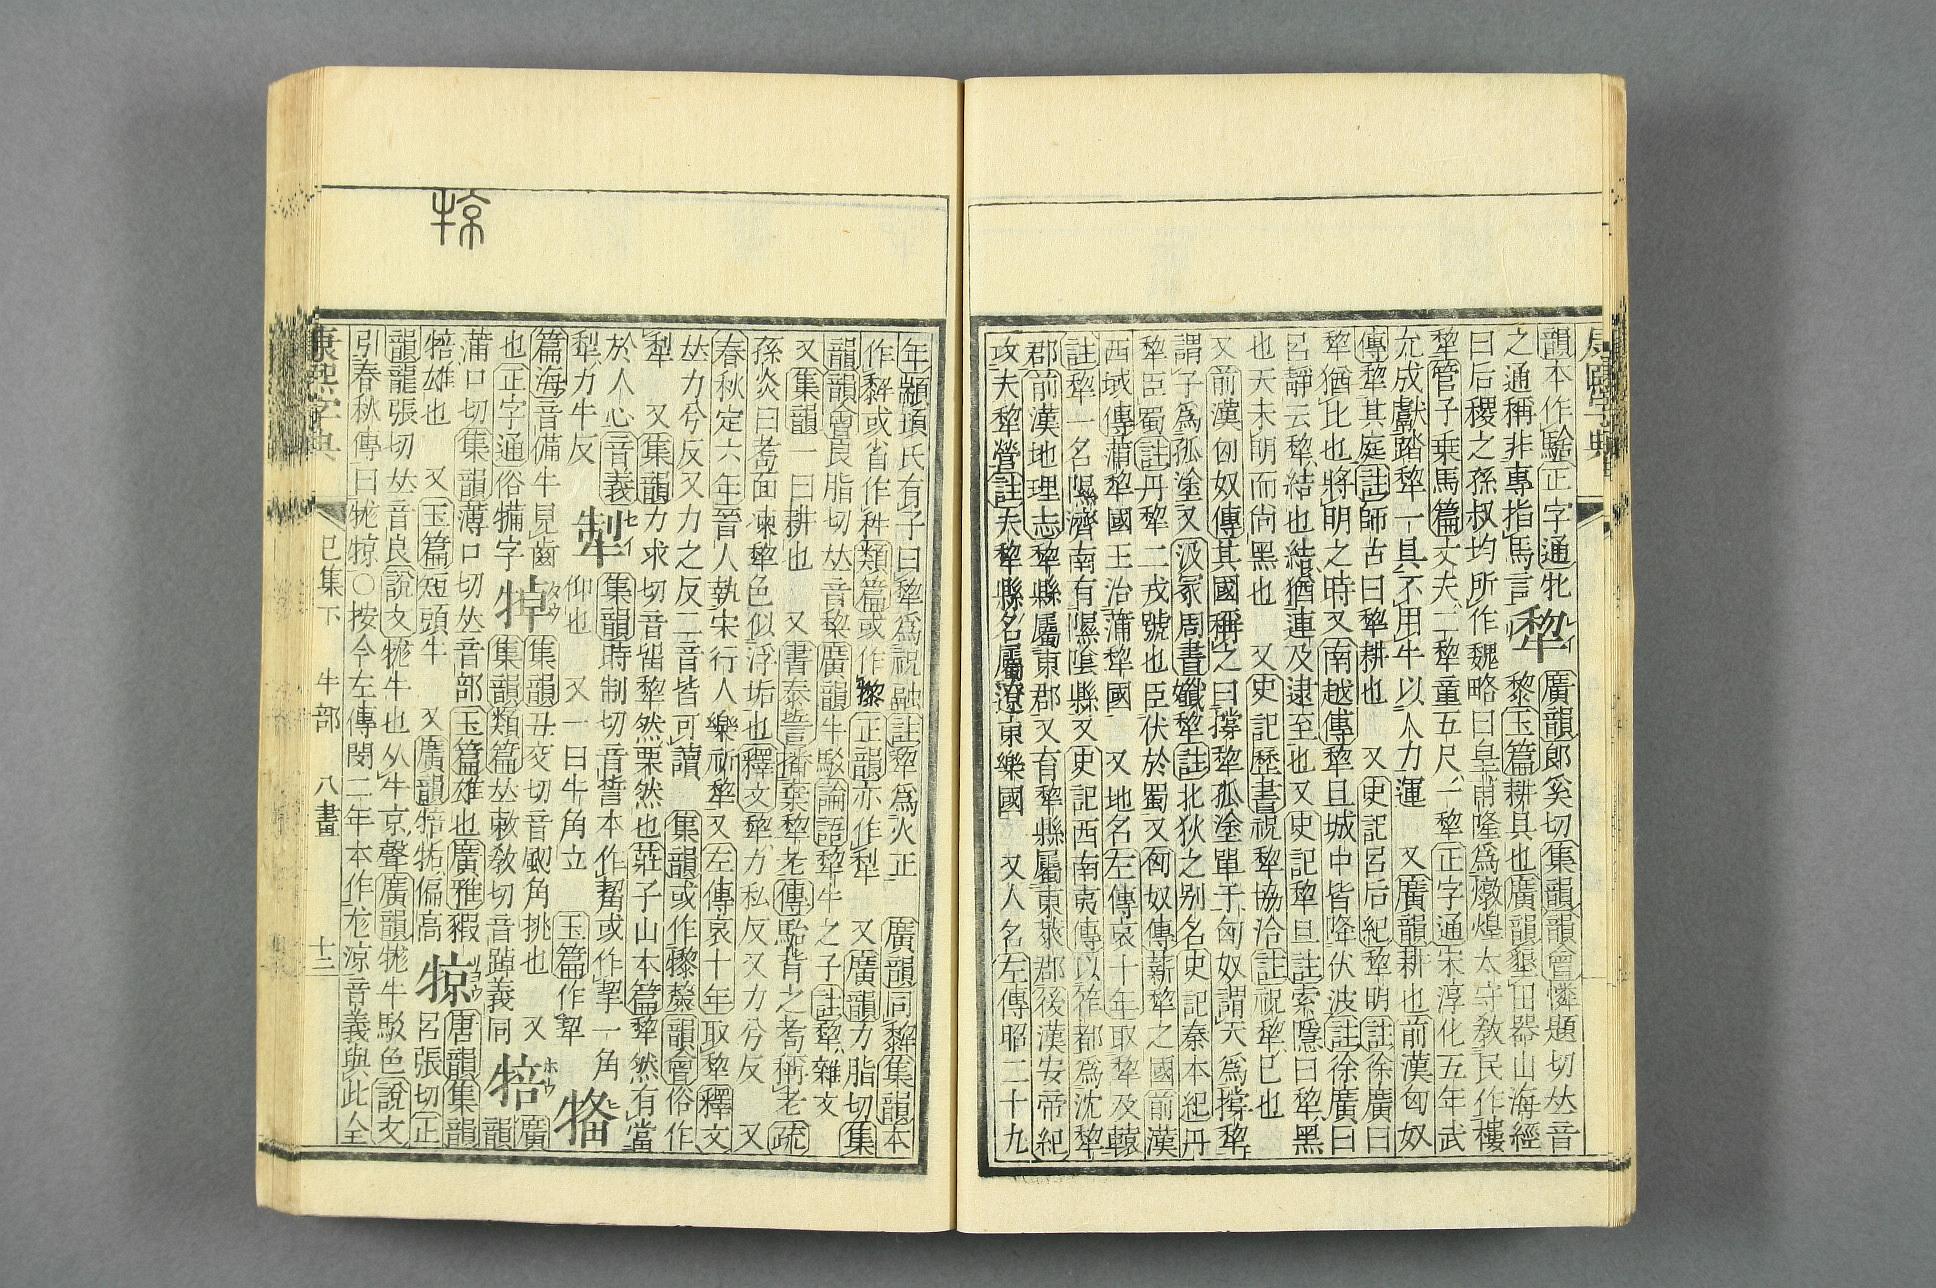 韻本作䮫正字通牝犂廣韻郎奚切集韻韻會憐題切𠀤音
之通稱非專指馬言黎玉篇耕具也廣韻墾田器山海經
曰后稷之孫叔均所作魏略曰皇甫隆爲燉煌太守敎民作樓
犂管子乗馬篇丈夫二犂童五尺一犂正字通宋淳化五年武
允成獻踏犂一具不用牛以人力運 又廣韻耕也前漢匈奴
傳犂其庭註師古曰犂耕也 又史記呂后紀犂明註徐廣曰
犂猶比也將明之時又南越傳犂旦城中皆降伏波註徐廣曰
呂靜云犂結也結猶連及逮至也又史記犂旦註索隱曰犂黑
也天未明而尚黑也 又史記歷書祝犂協洽註祝犂巳也
又前漢匈奴傳其國稱之曰撐犂孤塗單于匈奴謂天爲撐犂
謂子爲孤塗又汲冢周書孅犂註北狄之别名史記秦本紀丹
犂臣蜀註丹犂二戎號也臣伏於蜀又匈奴傳薪犂之國前漢
西域傳蒲犂國王治蒲犂國 又地名左傳哀十年取犂及轅
註犂一名隰濟南有隰隂縣又史記西南夷傳以笮都爲沈犂
郡前漢地理志犂縣屬東郡又有犂縣屬東萊郡後漢安帝紀
攻夫犂營註夫犂縣名屬遼東樂國 又人名左傳昭二十九
年顓頊氏有子曰犂爲祝融註犂爲火正 廣韻同犂集韻本
作𤛿或省作𥝢類篇或作㴝正韻亦作犁 又廣韻力脂切集
韻韻會良脂切𠀤音棃廣韻牛駁論語犂牛之子註犂雜文
又集韻一曰耕也 又書泰誓播棄犂老傳鮐背之耇稱老疏
孫炎曰耇面凍犂色似浮垢也釋文犂力私反又力兮反 又
春秋定六年晉人執宋行人樂祁犂又左傳哀十年取犂釋文
𠀤力兮反又力之反二音皆可讀 集韻或作𤛿𥣥韻會俗作
犁 又集韻力求切音畱犂然栗然也莊子山木篇犂然有當
於人心音義犂力牛反
犁力牛反 㸷集韻時制切音誓本作觢或作挈一角
仰也 又一曰牛角立 玉篇作㸷 㸵
篇海音備牛見齒
也正字通俗犕字 䍜集韻丑交切音𠜾角挑也 又
集韻類篇𠀤敕敎切音踔義同 㸬廣韻
蒲口切集韻薄口切𠀤音部玉篇雄也廣雅豭
㸬雄也 又玉篇短頭牛 又廣韻㸬㸰偏高 㹁唐韻集韻
韻龍張切𠀤音良說文牻牛也从牛京聲廣韻牻牛駁色說文
引春秋傳曰牻㹁○按今左傳閔二年本作尨涼音義與此全
康熙字典 巳集下 牛部 八畫 十二